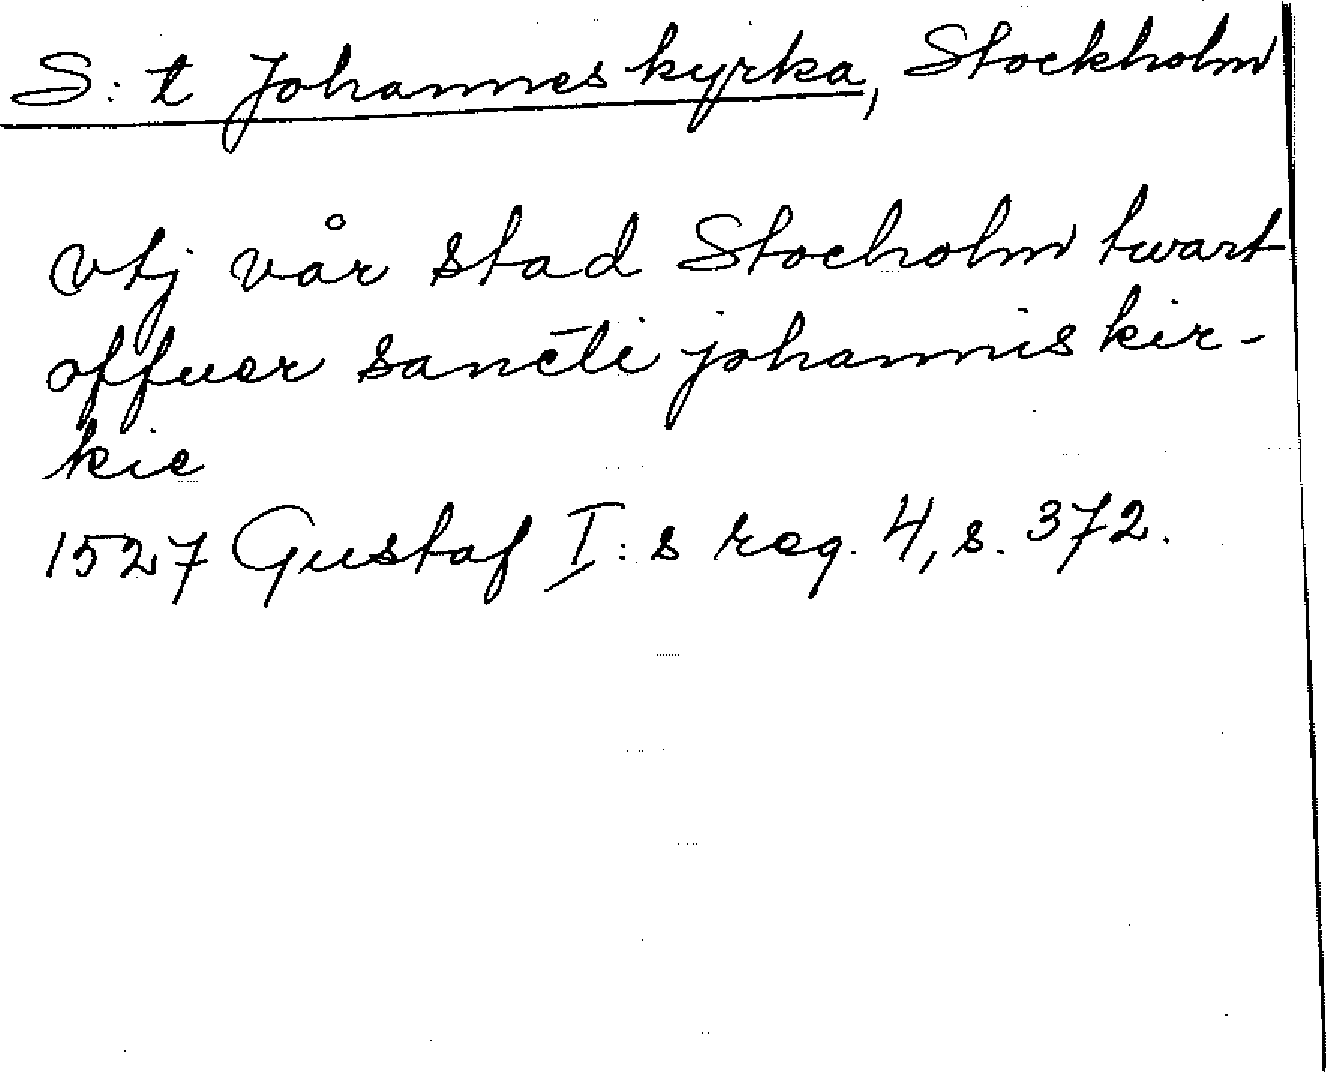 S:t Johannes kyrka, Stockholm
vtj vår stad Stocholm twart
offuer sancti johannis kir-
kie
1527 Gustaf I:s reg. 4, s. 372.